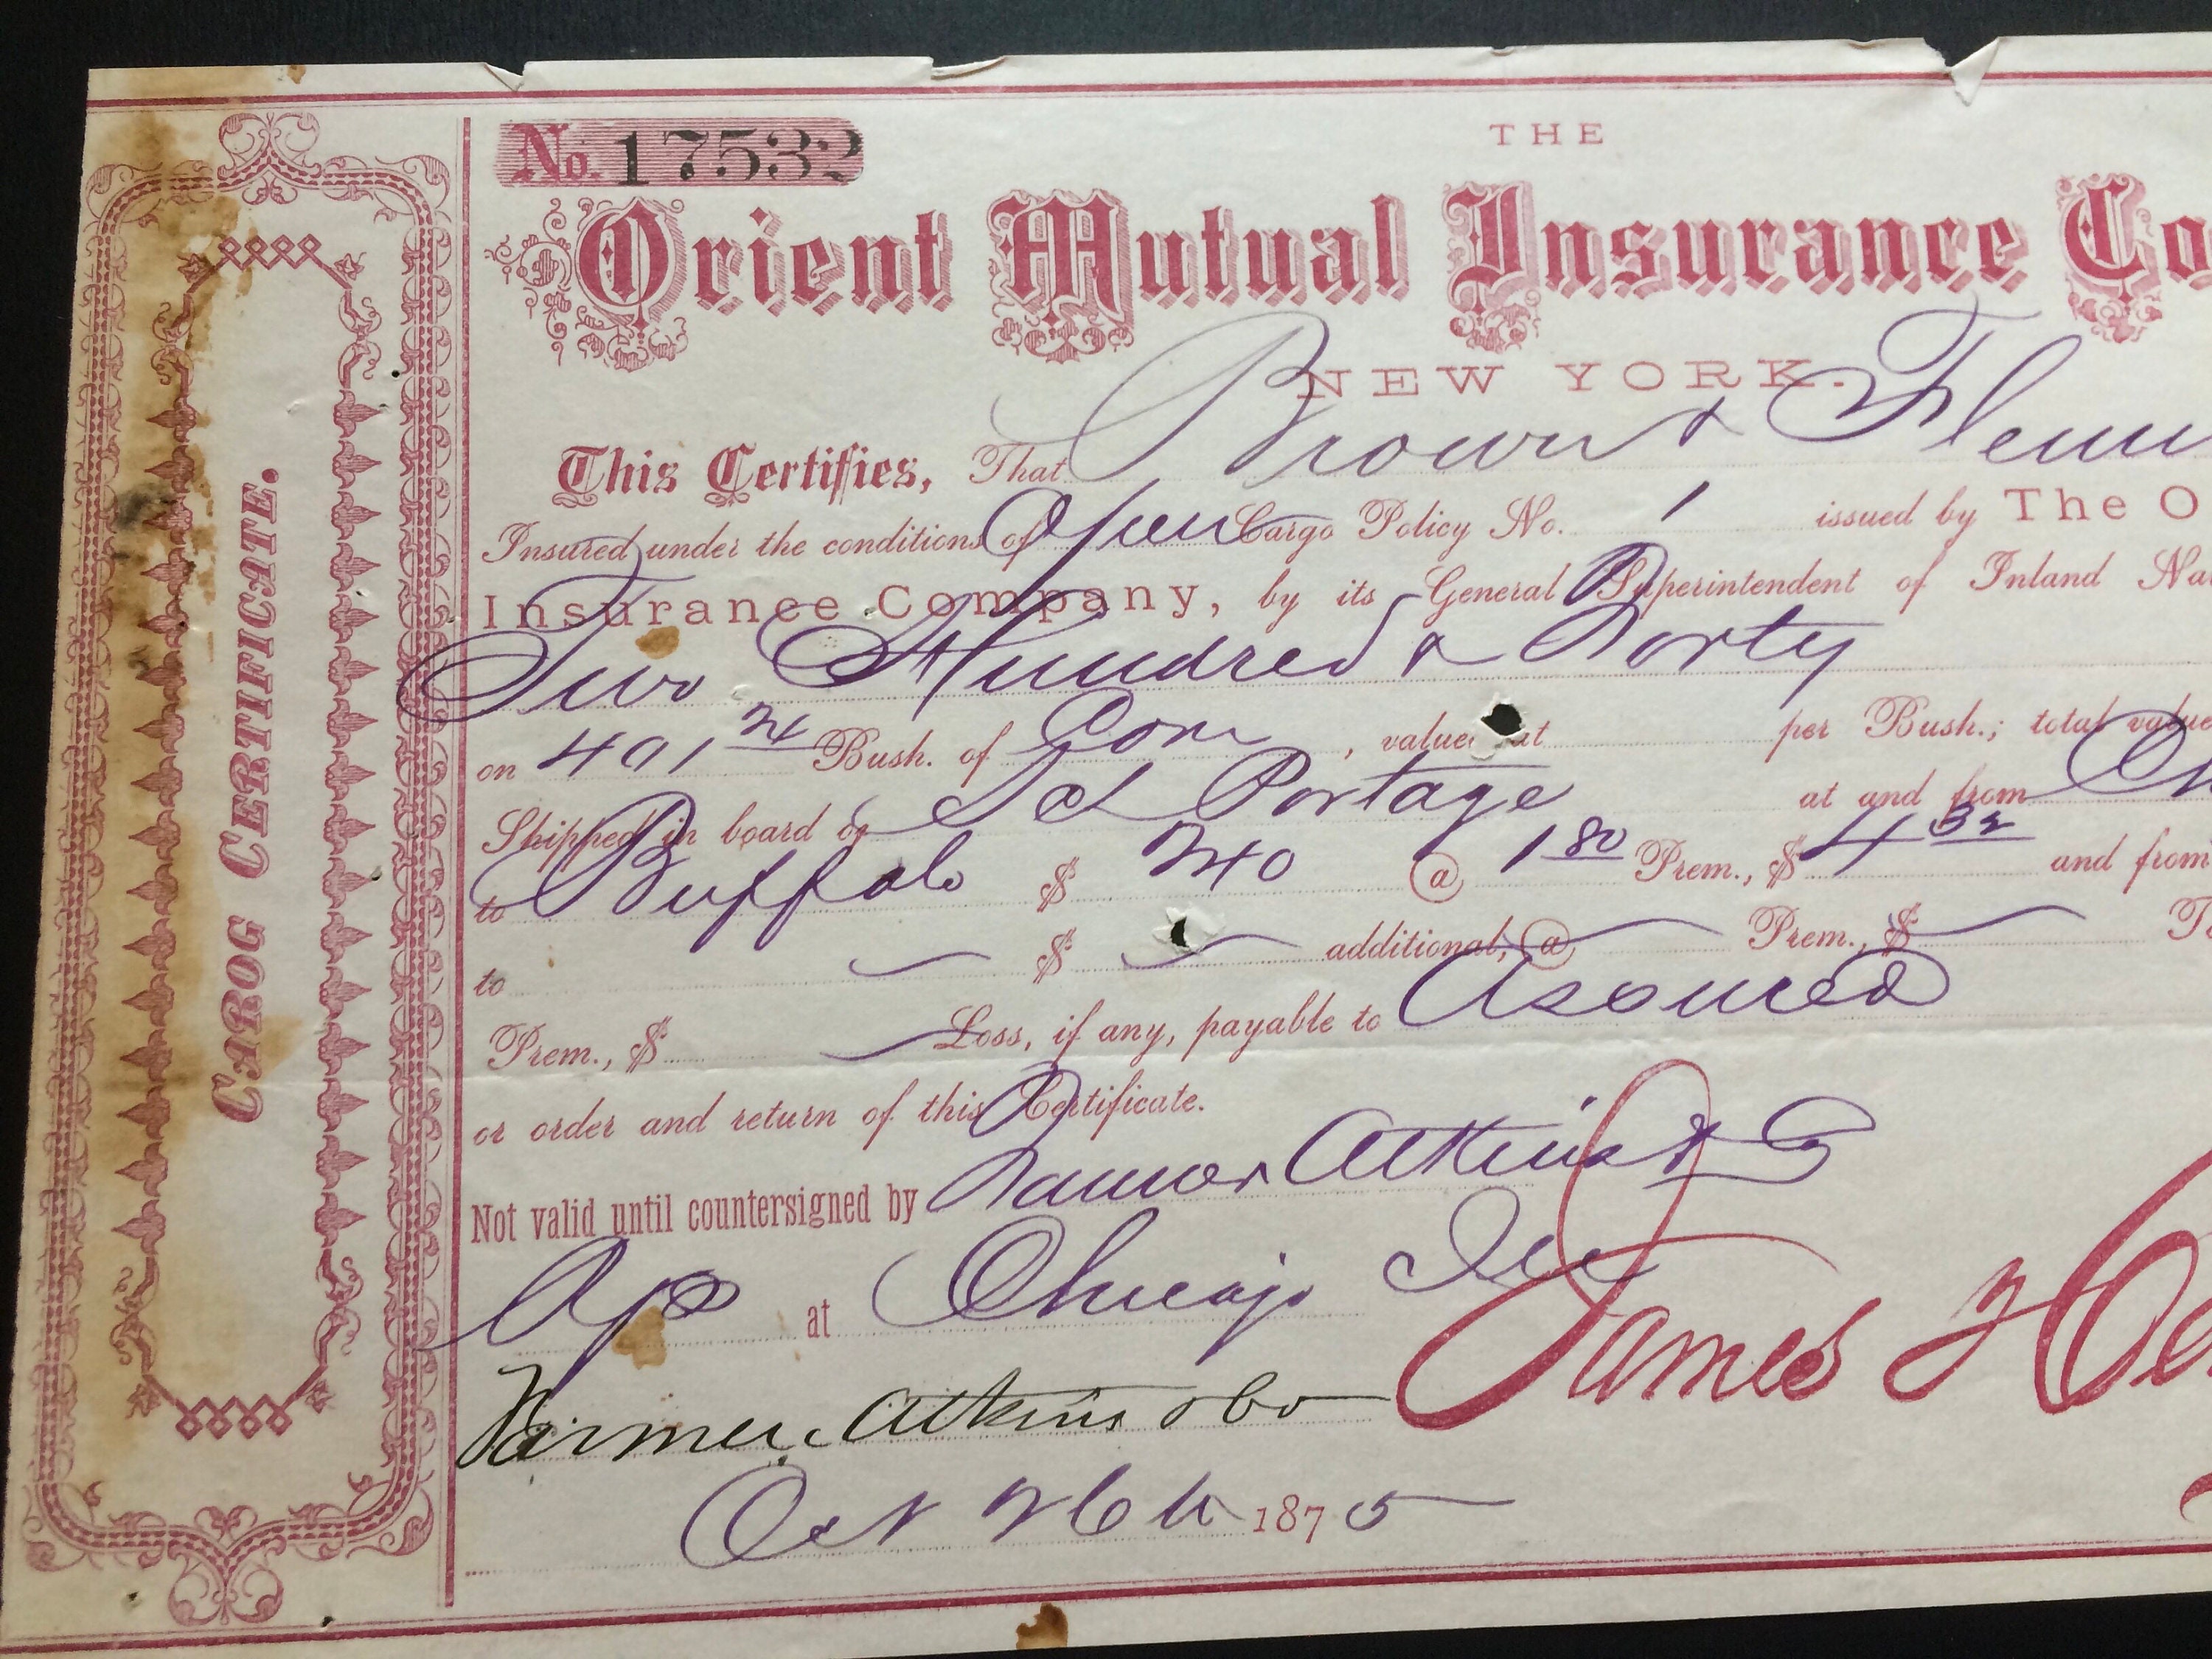 No. 17532
THE
Orient Mutual Insurance Co
NEW YORK.
This Certifies, That Brown & Flem
Insured under the conditions of Open Cargo Policy No. 1 issued by The O
Insurance Company, by its General Superintendent of Inland Na
Two Hundred & Forty
on 401 24 Bush. of Corn, valued at per Bush.; total value
Shipped in board of Portage at and from Ch
to Buffalo $ 240 @ 1 80 Prem., $ 4 32 and from
to $ additional, @ Prem., $ T
Prem., $ Loss, if any, payable to Assured
or order and return of this Certificate.
Not valid until countersigned by Farmer Atkins & Co
Agts at Chicago Ill
James
Farmer, Atkins & Co
Oct 26 1875
CAROG CERTIFICATE.